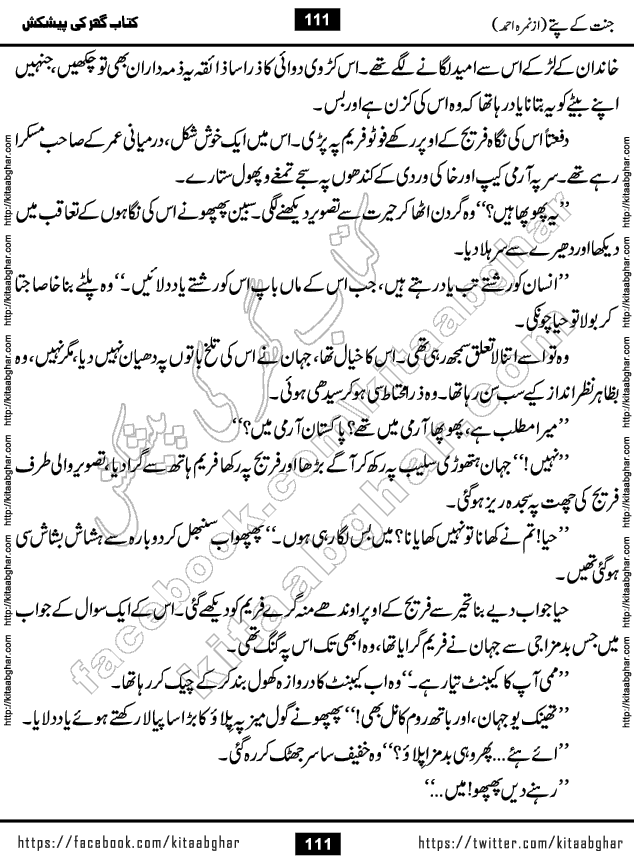 جنت کے پتے (از نمرہ احمد)
111
کتاب گھر کی پیشکش
خاندان کے لڑکے اس سے امید لگانے لگے تھے۔ اس کڑوی دوائی کا ذرا سا ذائقہ یہ ذمہ داران بھی تو چکھیں، جنہیں
اپنے بیٹے کو یہ بتانا یاد رہا تھا کہ وہ اس کی کزن ہے اور بس۔
دفعتاً اس کی نگاہ فریج کے اوپر رکھے فوٹو فریم پہ پڑی۔ اس میں ایک خوش شکل، درمیانی عمر کے صاحب مسکرا
رہے تھے۔ سر پہ آرمی کیپ اور خاکی وردی کے کندھوں پہ سجے تمغے و پھول ستارے۔
’’یہ پھوپھا ہیں؟‘‘ وہ گردن اٹھا کر حیرت سے تصویر دیکھنے لگی۔ سبین پھپھو نے اس کی نگاہوں کے تعاقب میں
دیکھا اور دھیرے سے سر ہلا دیا۔
’’انسان کو رشتے تب یاد رہتے ہیں، جب اس کے ماں باپ اس کو رشتے یاد دلائیں۔‘‘ وہ پلٹے بنا خاصا جتا
کر بولا تو حیا چونکی۔
وہ تو اسے اتنا لا تعلق سمجھ رہی تھی۔ اس کا خیال تھا، جہان نے اس کی تلخ باتوں پہ دھیان نہیں دیا، مگر نہیں، وہ
بظاہر نظر انداز کیے سب سن رہا تھا۔ وہ ذرا محتاط سی ہو کر سیدھی ہوئی۔
’’میرا مطلب ہے، پھوپھا آرمی میں تھے؟ پاکستان آرمی میں؟‘‘
’’نہیں!‘‘ جہان ہتھوڑی سلیب پہ رکھ کر آگے بڑھا اور فریج پہ رکھا فریم ہاتھ سے گرا دیا، تصویر والی طرف
فریج کی چھت پہ سجدہ ریز ہو گئی۔
’’حیا! تم نے کھانا تو نہیں کھایا نا؟ میں بس لگا رہی ہوں۔‘‘ پھپھو اب سنبھل کر دوبارہ سے ہشاش بشاش سی
ہو گئی تھیں۔
حیا جواب دیے بنا تحیر سے فریج کے اوپر اوندھے منہ گرے فریم کو دیکھے گئی۔ اس کے ایک سوال کے جواب
میں جس بدمزاجی سے جہان نے فریم گرایا تھا، وہ ابھی تک اس پہ گنگ تھی۔
’’ممی آپ کا کیبنٹ تیار ہے۔‘‘ وہ اب کیبنٹ کا دروازہ کھول بند کر کے چیک کر رہا تھا۔
’’تھینک یو جہان، اور باتھ روم کا نل بھی!‘‘ پھپھو نے گول میز پہ پلاؤ کا بڑا سا پیالا رکھتے ہوئے یاد دلایا۔
’’ائے ہئے... پھر وہی بدمزا پلاؤ؟‘‘ وہ خفیف سا سر جھٹک کر رہ گئی۔
’’رہنے دیں پھپھو! میں...‘‘
http://kitaabghar.com http://kitaabghar.com http://kitaabghar.com http://kitaabghar.com http://kitaabghar.com http://kitaabghar.com
http://kitaabghar.com http://kitaabghar.com http://kitaabghar.com http://kitaabghar.com http://kitaabghar.com http://kitaabghar.com
کتاب گھر کی پیشکش
facebook.com/kitaabghar
kitaabghar.com
https://facebook.com/kitaabghar
111
https://twitter.com/kitaabghar